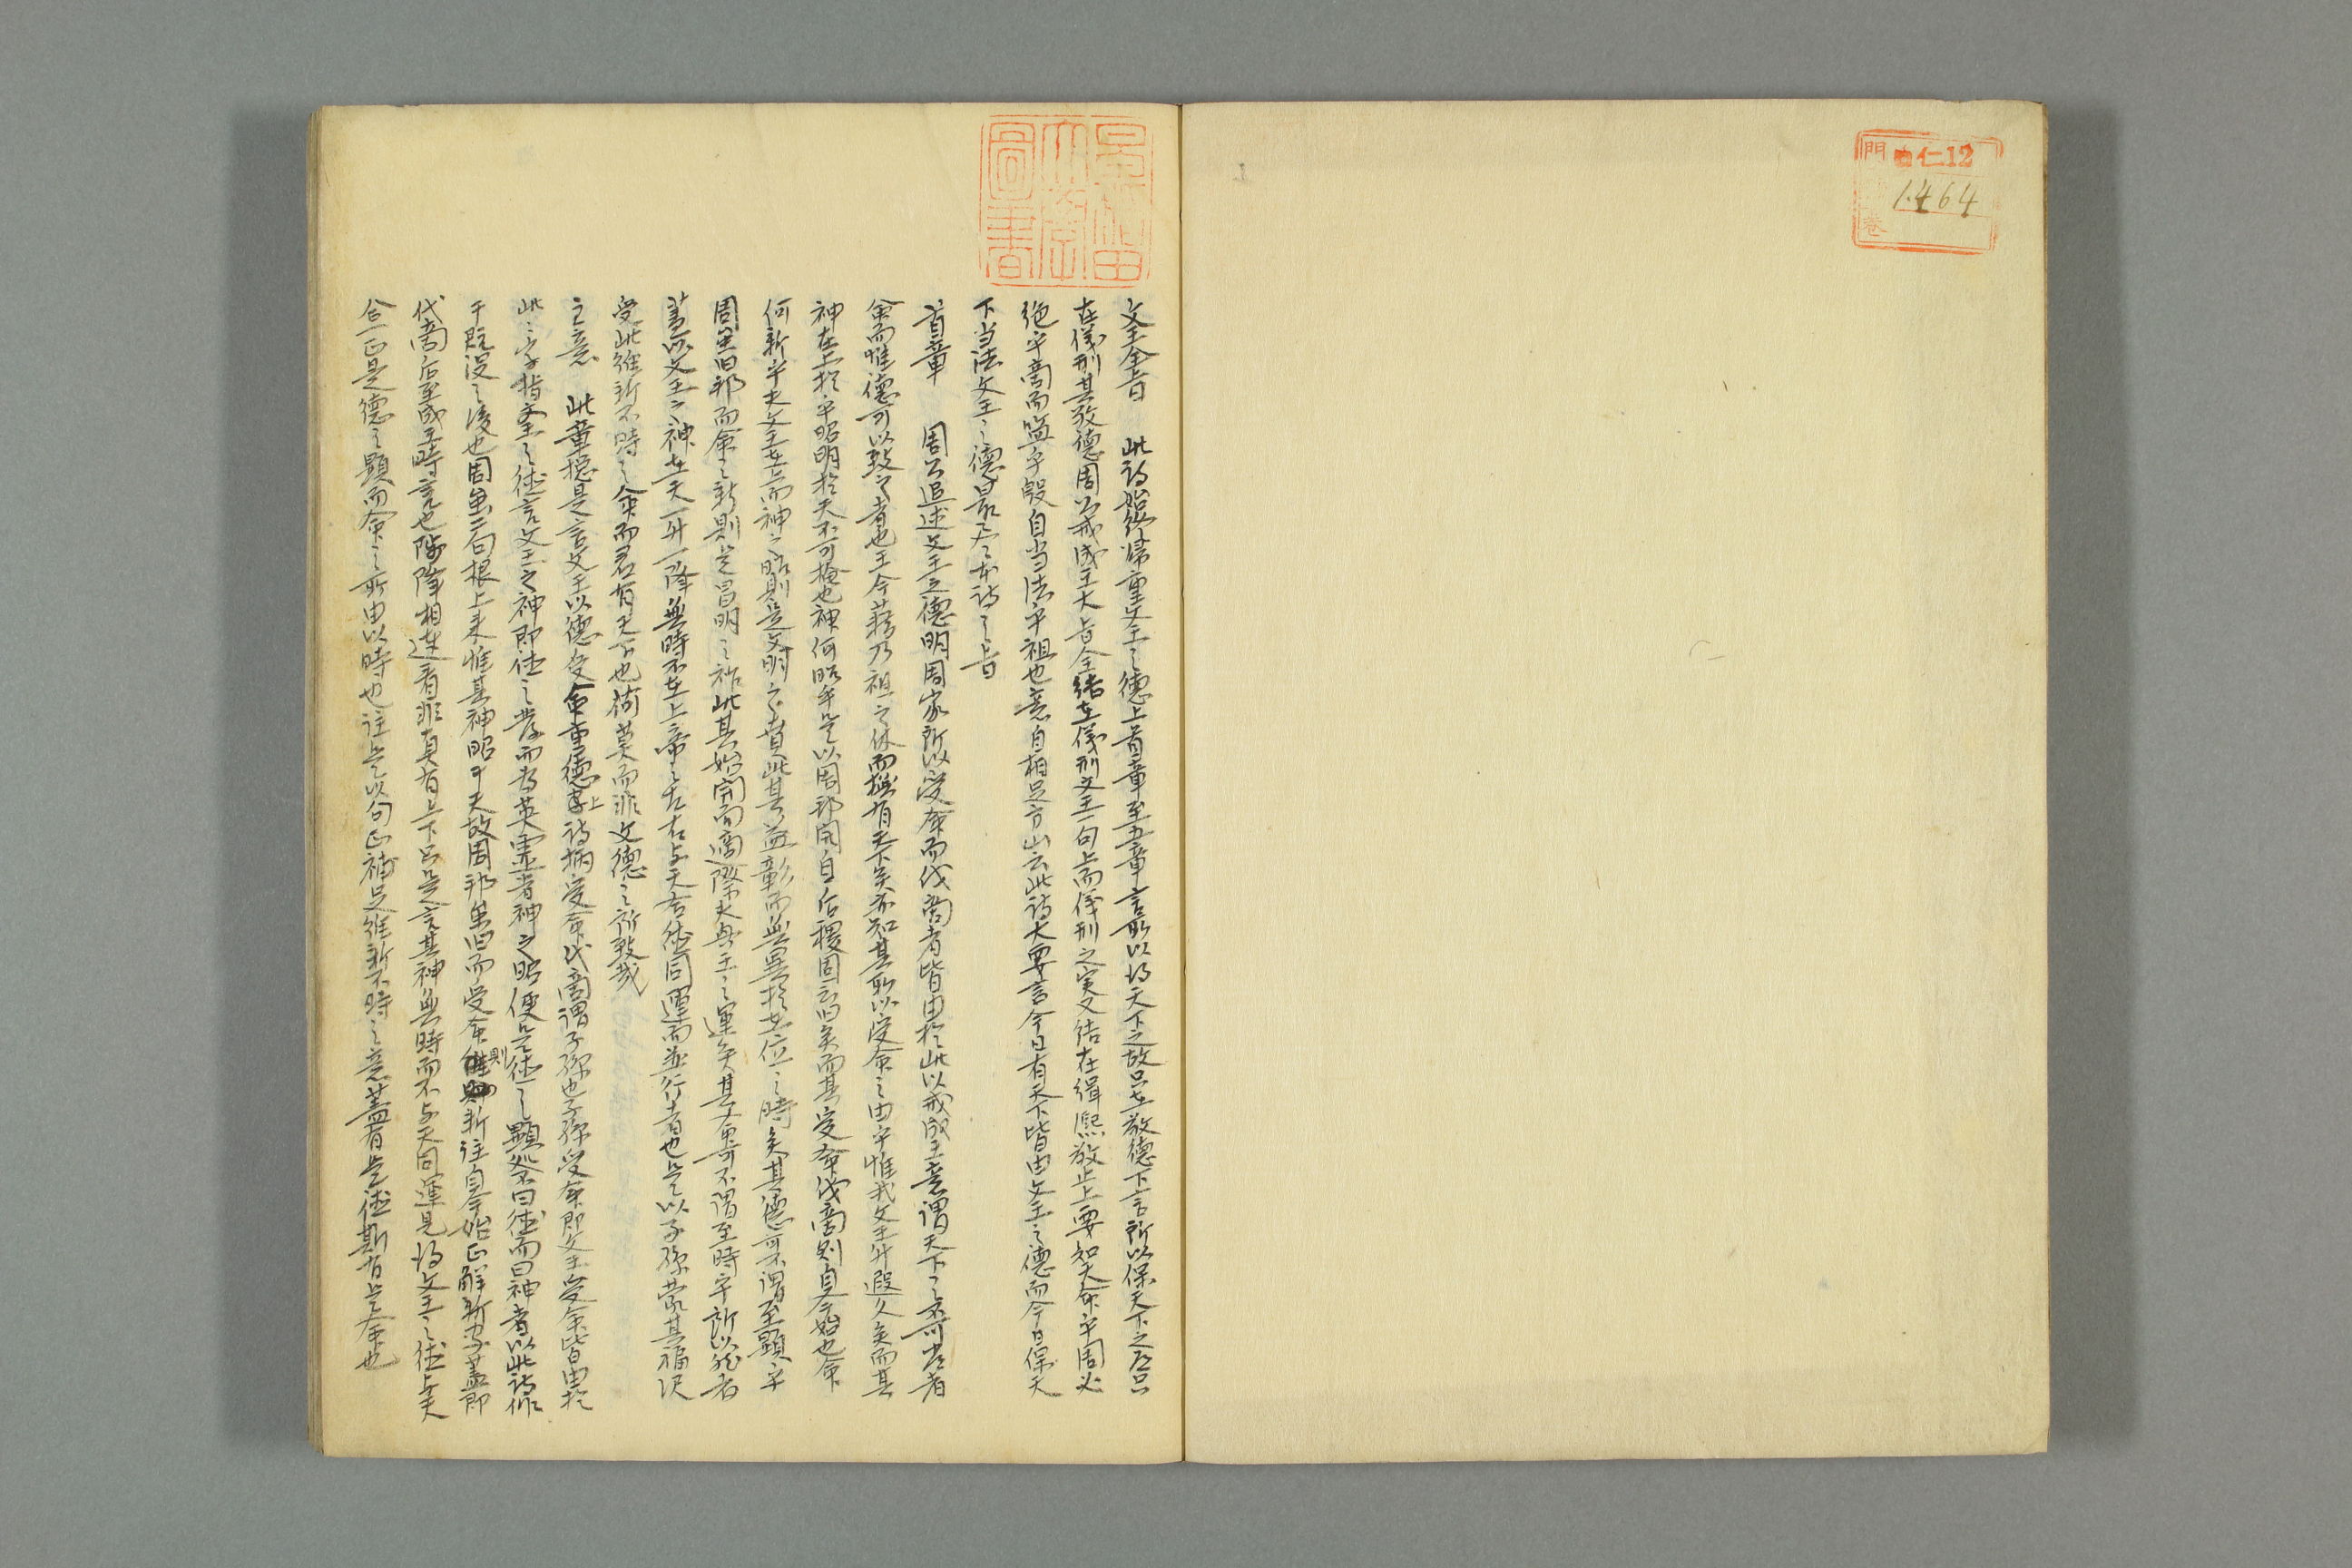 門 仁12
1.464
卷
文王全旨 此詩始終歸重文王之德上首章至五章言所以得天下之故只在敬德下言所以保天下之道只
在儀刑其敬德周公戒成王大旨全結在儀刑文王一句上而儀刑之実又結在緝熙敬止上要知天命乎周必
絕乎商而鑒乎殷自当法乎祖也意自相足方山云此詩大要言今日有天下皆由文王之德而今日保天
下当法文王之德最尽本詩之旨
首章 周公追述文王之德明周家所以受命而代商者皆由於此以戒成王意謂天下之不可常者
命而惟德可以致之者也王今藉乃祖之休而撫有天下矣亦知其所以受命之由乎惟我文王升遐久矣而其
神在上於乎昭明於天不可掩也神何昭乎是以周邦開自后稷固云旧矣而其受命代商則自今始也命
何新乎夫文王在上而神之昭則是文明之貴此其益彰而無異於在位之時矣其德可不謂至顯乎
周虽旧邦而命之新則是昌明之祚此其始開而適際夫興王之運矣其命可不謂至時乎所以然者
蓋以文王之神在天一升一降無時不在上帝之左右与天合德同運而並行者也是以子孫蒙其福沢
受此維新不時之命而君有天下也荷莫而非文德之所致哉
主意 此章摠是言文王以德受命重德字上詩柄受命代商謂子孫也子孫受命即文王受命皆由於
此二字指文王之德言文王之神即德之發而為英靈者神之昭便是德之顯処不曰德而曰神者以此詩作
于既没之後也周虽二句根上来惟其神昭于天故周邦虽旧而受命則新註自今始正解新字蓋即
代商后至成王時言也陟降相连看非真有上下只是言其神無時而不与天同運見得文王之德与天
合一正是德之顯而命之所由以時也註是以句正補足維新不時之意蓋有是德斯有是命也